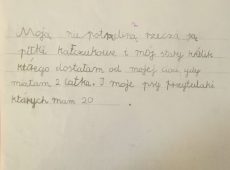 Moją nie potrzebną rzeczą są
piłki kałczukowe i mój stary królik
którego dostałam od mojej cioci gdy
miałam 2 latka. I moje psy przytulaki
których mam 20